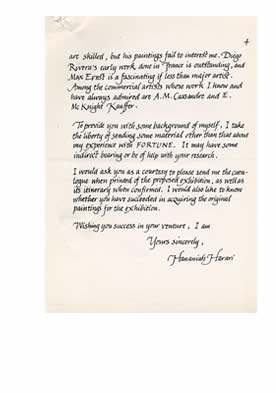 4
are skilled, but his paintings fail to interest me. Diego
Rivera's early work done in France is outstanding, and
Max Ernst is a fascinating if less than major artist.
Among the commercial artists whose work I know and
have always admired are A.M. Cassandre and E.
McKnight Kauffer.
To provide you with some background of myself, I take
the liberty of sending some material other than that about
my experience with FORTUNE. It may have some
indirect bearing or be of help with your research.
I would ask you as a courtesy to please send me the cata-
logue when printed of the proposed exhibition, as well as
its itinerary when confirmed. I would also like to know
whether you have succeeded in acquiring the original
paintings for the exhibition.
Wishing you success in your venture, I am
Yours sincerely,
Hananiah Harari